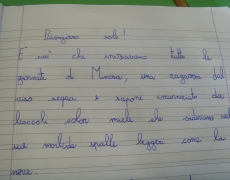 Buongiorno sole!
E così che iniziavano tutte le
giornate di Minora, una ragazza dal
viso acqua e sapone incorniciato da
boccoli color miele che cadevano sul
sue morbide spalle leggere come la
neve.